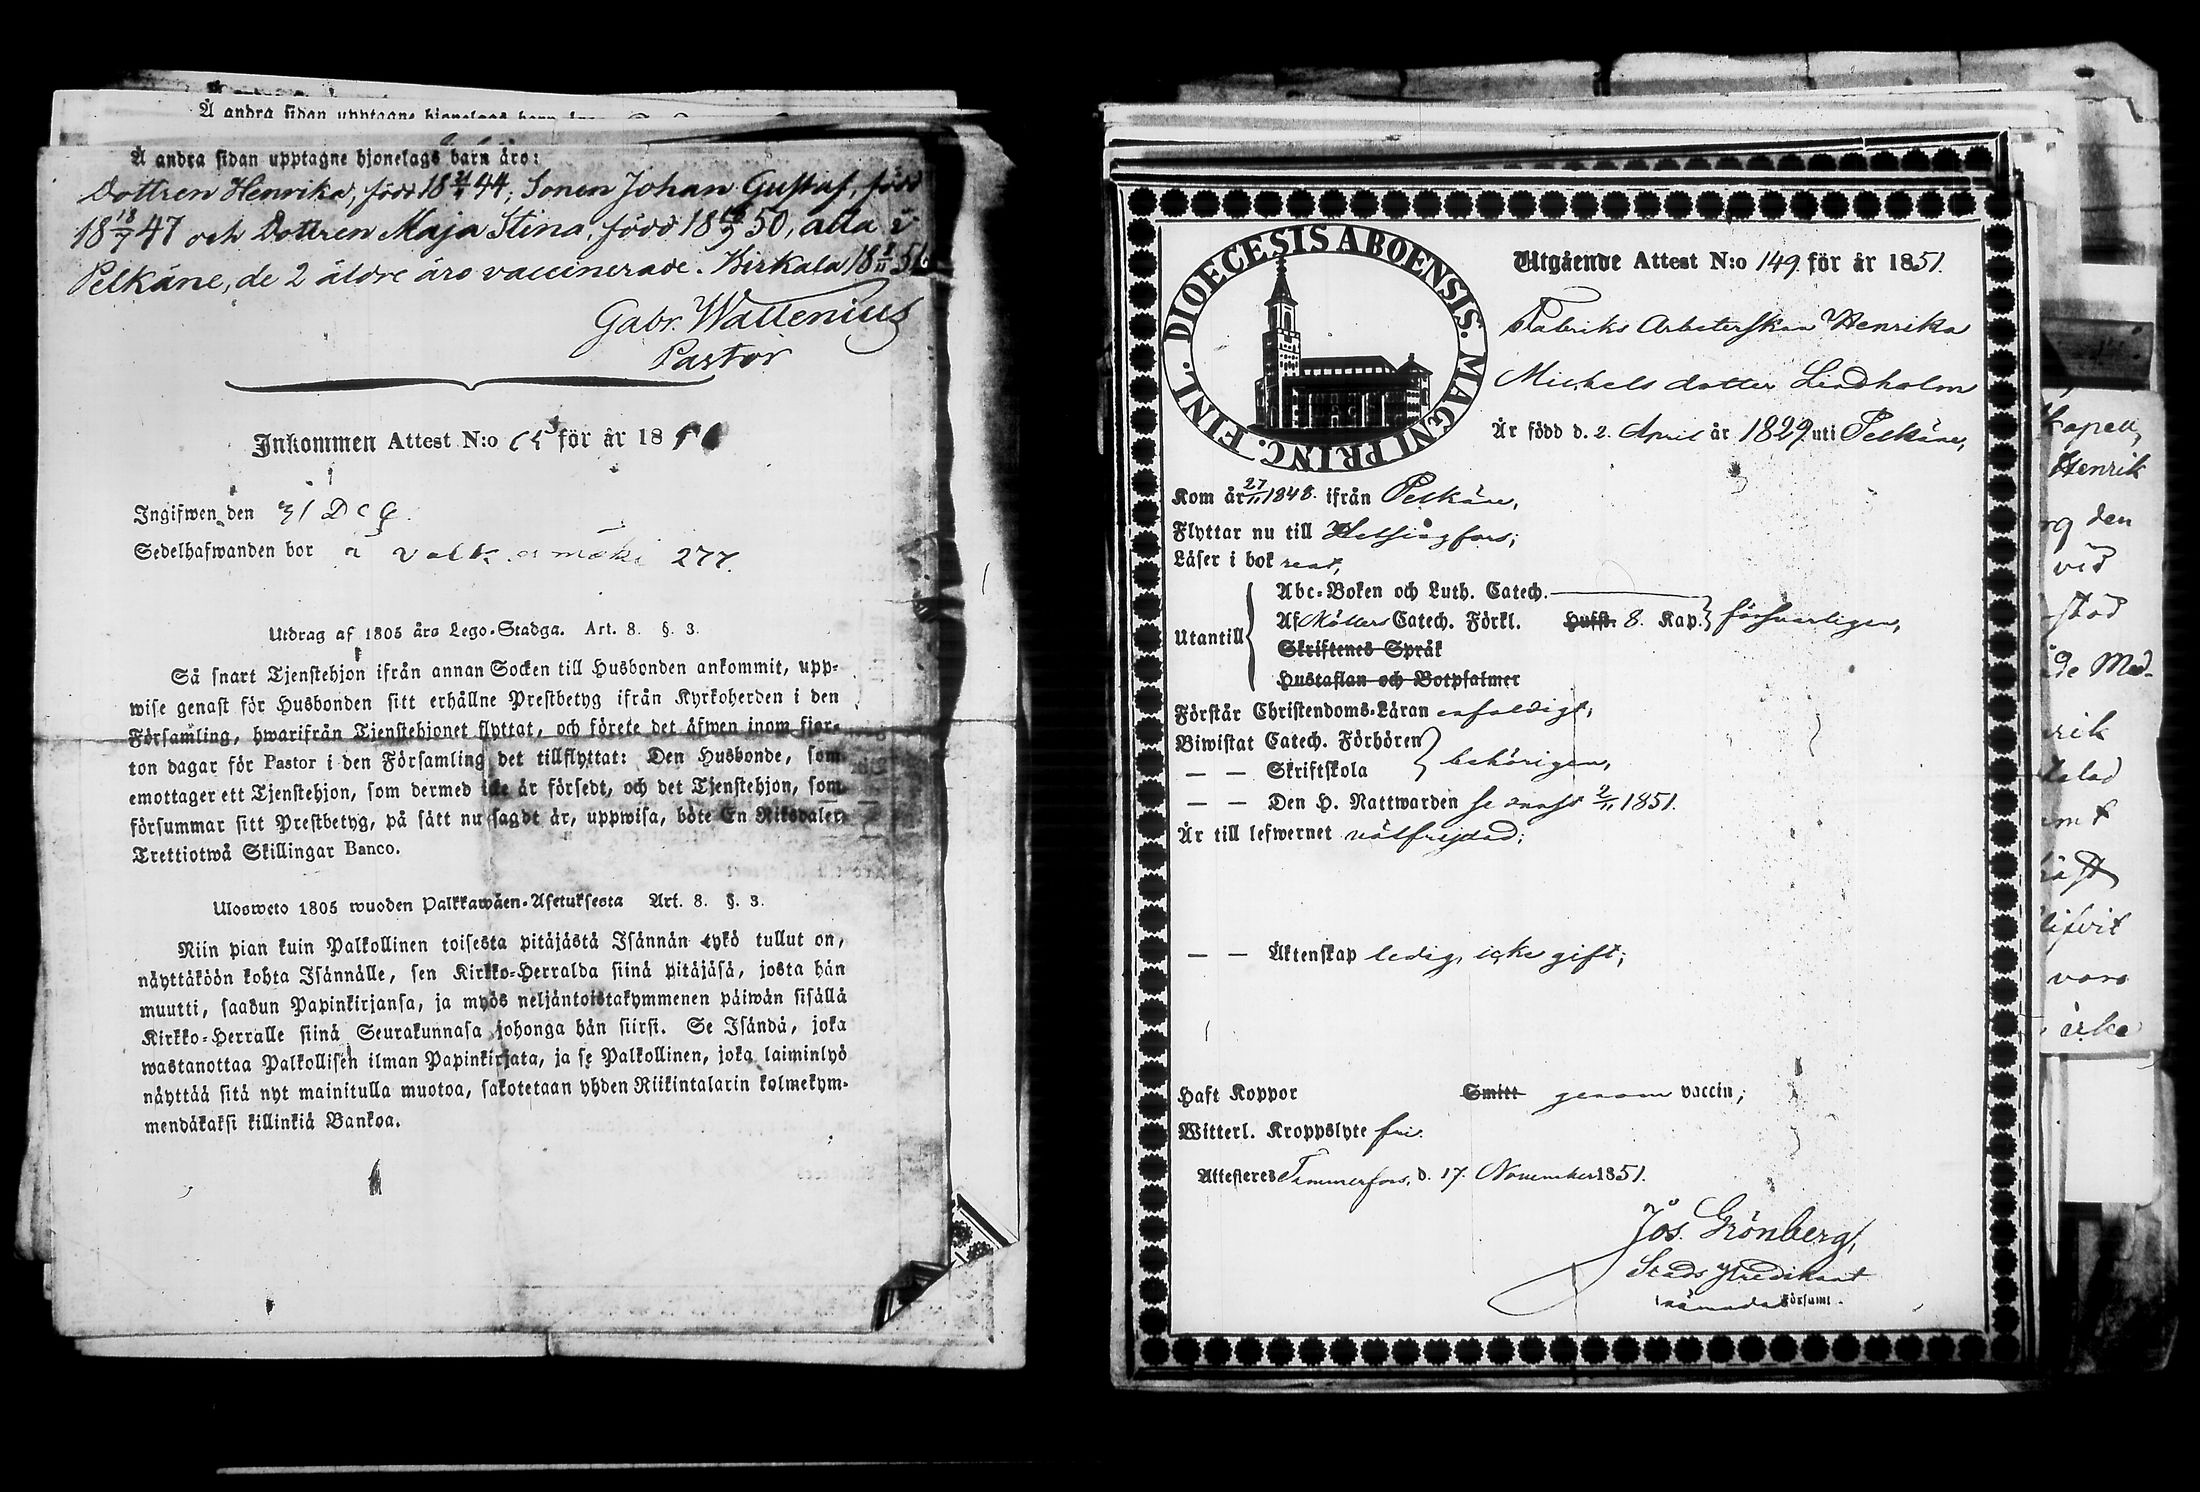 Å andra sidan upptagne hjonelags barn äro:
Å andra sidan upptagne hjonelags barn äro:
Dottren Henrika, född 18 21/4 44, Sonen Johan Gustaf, född
18 18/7 47 och Dottren Maja Stina, född 18 50, alla i
Pelkäne, de 2 äldre äro vaccinerade. Birkala 18 8/11 51
Gabr. Wallenius
Pastor
Inkommen Attest N:o för år 18
Ingifwen den 31 Dec
Sedelhafwanden bor 277.
Utdrag af 1805 års Lego-Stadga. Art. 8. §. 3.
Så snart Tjenstehjon ifrån annan Socken till Husbonden ankommit, upp-
wise genast för Husbonden sitt erhållne Prestbetyg ifrån Kyrkoherden i den
Församling, hwarifrån Tjenstehjonet flyttat, och förete det äfwen inom fjor-
ton dagar för Pastor i den Församling det tillflyttat: Den Husbonde, som
emottager ett Tjenstehjon, som dermed icke är försedt, och det Tjenstehjon, som
försummar sitt Prestbetyg, på sätt nu sagdt är, uppwisa, böte En Riksdaler
Trettiotwå Skillingar Banco.
Ulosweto 1805 wuoden Palkkawäen-Asetuksesta Art. 8. §. 3.
Niin pian kuin Palkollinen toisesta pitäjästä Isännän tykö tullut on,
näyttäköön kohta Isännälle, sen Kirkko-Herralda siinä pitäjäsä, josta hän
muutti, saadun Papinkirjansa, ja myös neljäntoistakymmenen päiwän sisällä
Kirkko-Herralle siinä Seurakunnasa johonga hän siirsi. Se Isändä, joka
wastanottaa Palkollisen ilman Papinkirjata, ja se Palkollinen, joka laiminlyö
näyttää sitä nyt mainitulla muotoa, sakotetaan yhden Riikintalarin kolmekym-
mendäkaksi killinkiä Bankoa.
DIOECESIS ABOENSIS. MAGNI PRINC. FINL.
Utgående Attest N:o 149. för år 1851.
Fabriks Arbeterskan Henrika
Michels dotter Lindholm
Är född d. 2. April år 1829. uti Pelkäne,
Kom år 27/11 1848. ifrån Pelkäne,
Flyttar nu till Helsingfors;
Läser i bok rent,
Utantill
Abc-Boken och Luth. Catech.
Af Möllers Catech. Förkl. Hufst. 8. Kap. försvarligen,
Skriftenes Språk
Hustaflan och Botpsalmer
Förstår Christendoms-Läran enfaldigt;
Biwistat Catech. Förhören
— — Skriftskola behörigen,
— — Den H. Nattwarden senast 2/11 1851.
Är till lefwernet välfrejdad;
— — Äktenskap ledig, icke gift;
Haft Koppor Smitt genom vaccin;
Witterl. Kroppslyte fri.
Attesteres Tammerfors, d. 17. November 1851.
Jos. Grönberg,
Stads Predikant
i nämnda Församl.
Kapell,
Henrik
den
vid
de Med-
vara